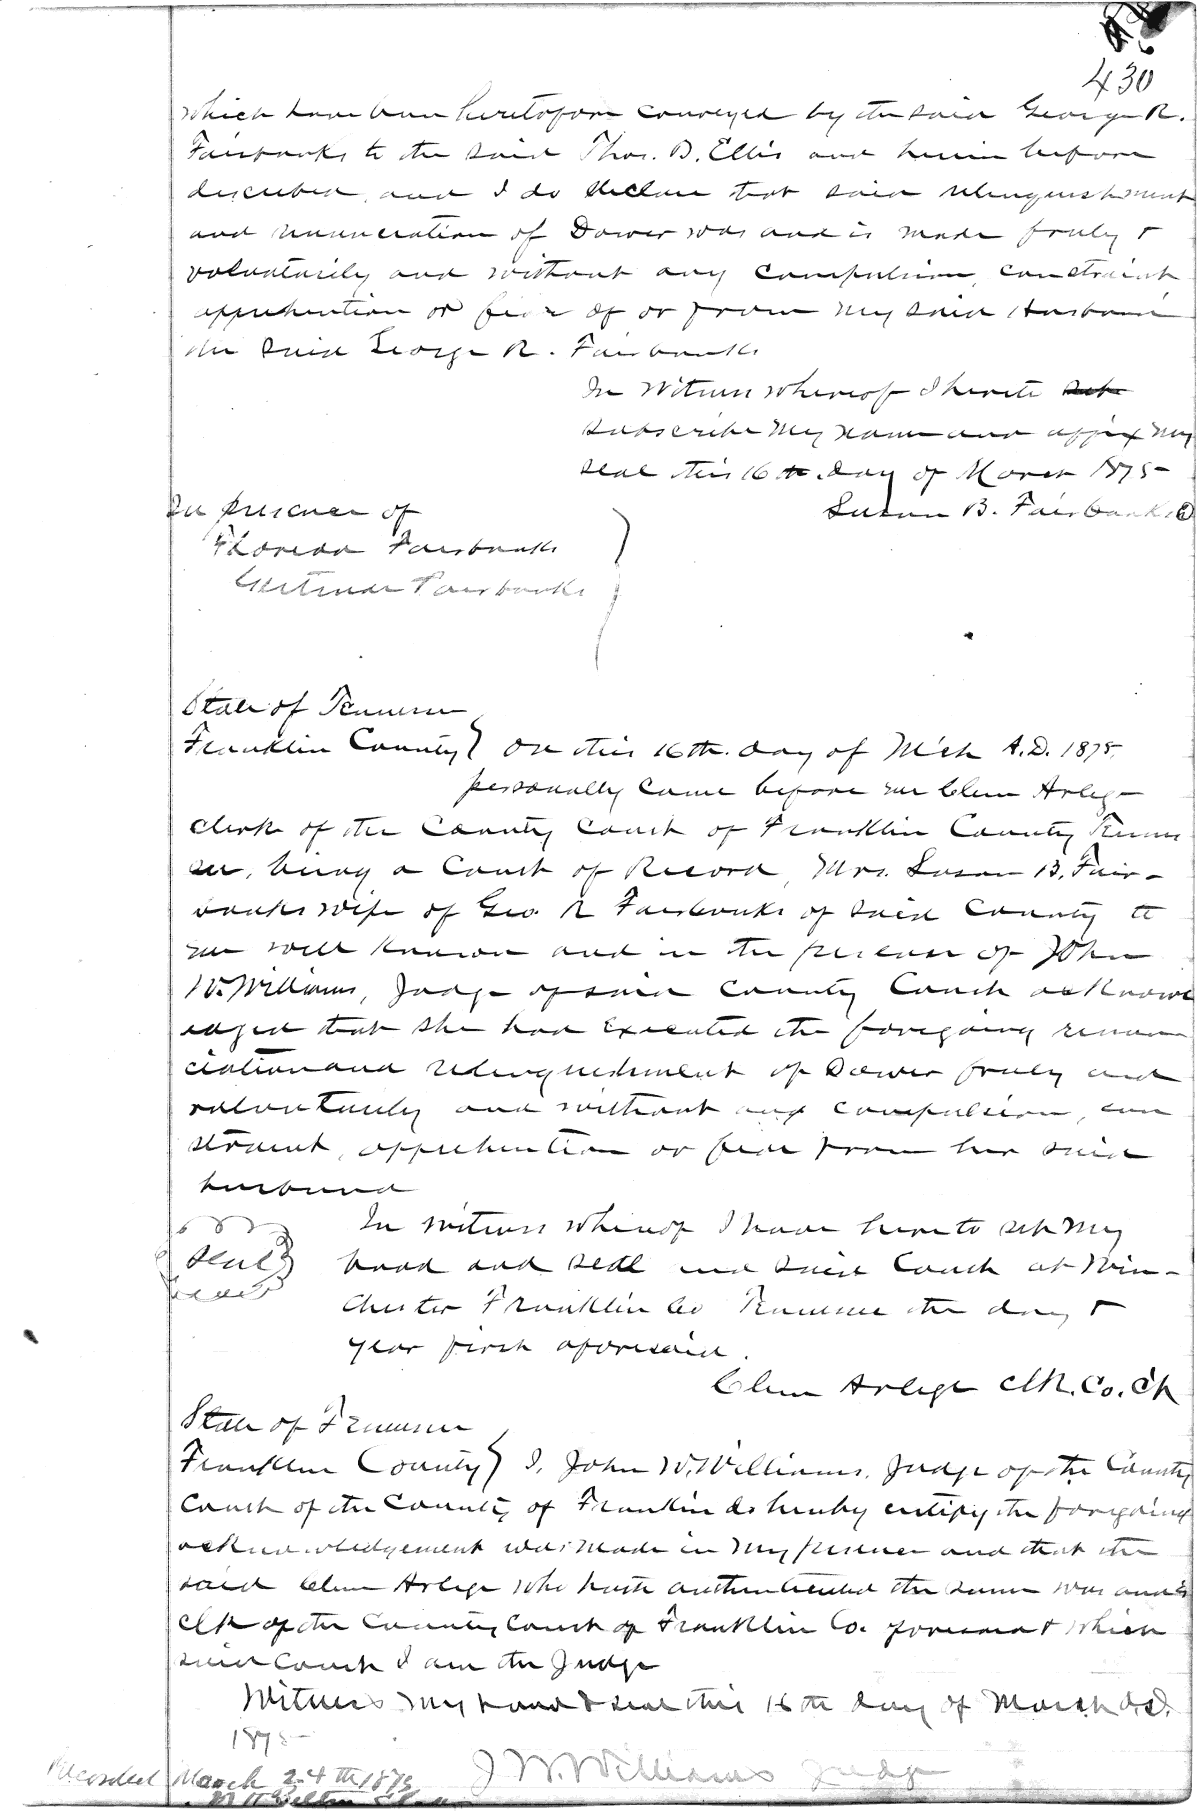 430
which have been heretofore conveyed by the said George R.
Fairbanks to the said Thos. B. Ellis and herein before
described, and I do declare that said relinquishment
and renunciation of Dower was and is made freely &
voluntarily and without any compulsion, constraint
apprehention or fear of or from my said Husband
the said George R. Fairbanks
In Witness whereof I hereto set
subscribe my name and affix my
seal this 16th day of March 1875
Susan B. Fairbanks
In presence of
Florida Fairbanks
Gertrude Fairbanks
State of Tennessee
Franklin County } On this 16th day of Mch A.D. 1875
personally came before me Clem Arlege
clerk of the County Court of Franklin County Tennes
see, being a Court of Record, Mrs. Susan B. Fair-
banks wife of Geo. R Fairbanks of said County to
me well known and in the presence of John
W. Williams, Judge of said County Court acknowl
edged that she had executed the foregoing renun
ciation and relinquishment of Dower freely and
voluntarily and without any compulsion, con
straint, apprehention or fear from her said
husband
In witness whereof I have hereto set my
seal
hand and seal and said Court at Win-
chester Franklin Co Tennessee the day &
year first aforesaid.
Clem Arlege Clk. Co. Ck
State of Tennessee
Franklin County } I, John W. Williams, Judge of the County
Court of the County of Franklin do hereby certify the foregoing
acknowledgement was made in my presence and that the
said Clem Arlege who hath authenticated the same was and is
Clk of the County Court of Franklin Co. & which
said Court I am the Judge
Witness my hand & seal this 16th day of March A.D.
1875
J W. Williams Judge
Recorded March 24th 1875